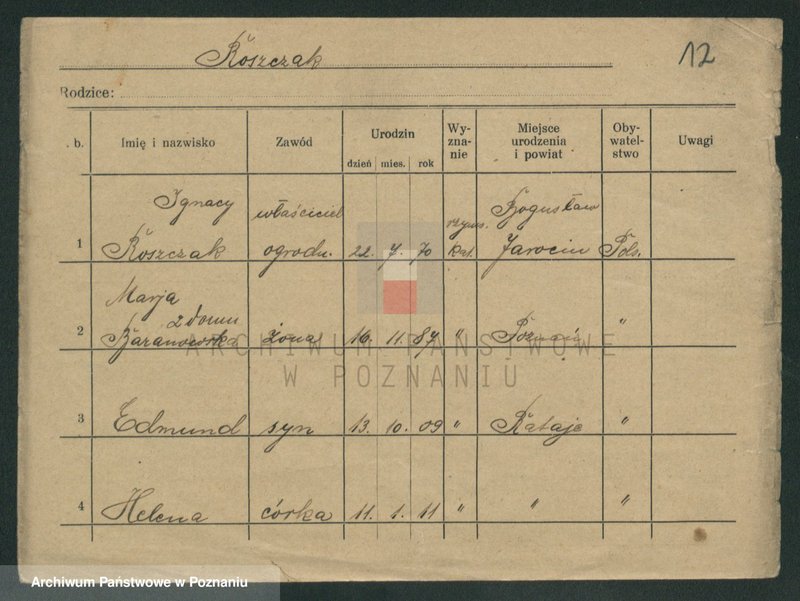 Roszczak
12
Rodzice:
. b. Imię i nazwisko Zawód Urodzin dzień mies. rok Wy-zna-nie Miejsce urodzenia i powiat Oby-watel-stwo Uwagi
Ignacy właściciel rzyms. Bogusław
1 Roszczak ogrodu. 22. 7. 70 kat. Jarocin Pols.
Marja
z domu
2 Baranowska żona 16. 11. 87 " Poznań "
3 Edmund syn 13. 10. 09 " Rataje "
4 Helena córka 11. 1. 11 " " "
ARCHIWUM PAŃSTWOWE
W POZNANIU
Archiwum Państwowe w Poznaniu